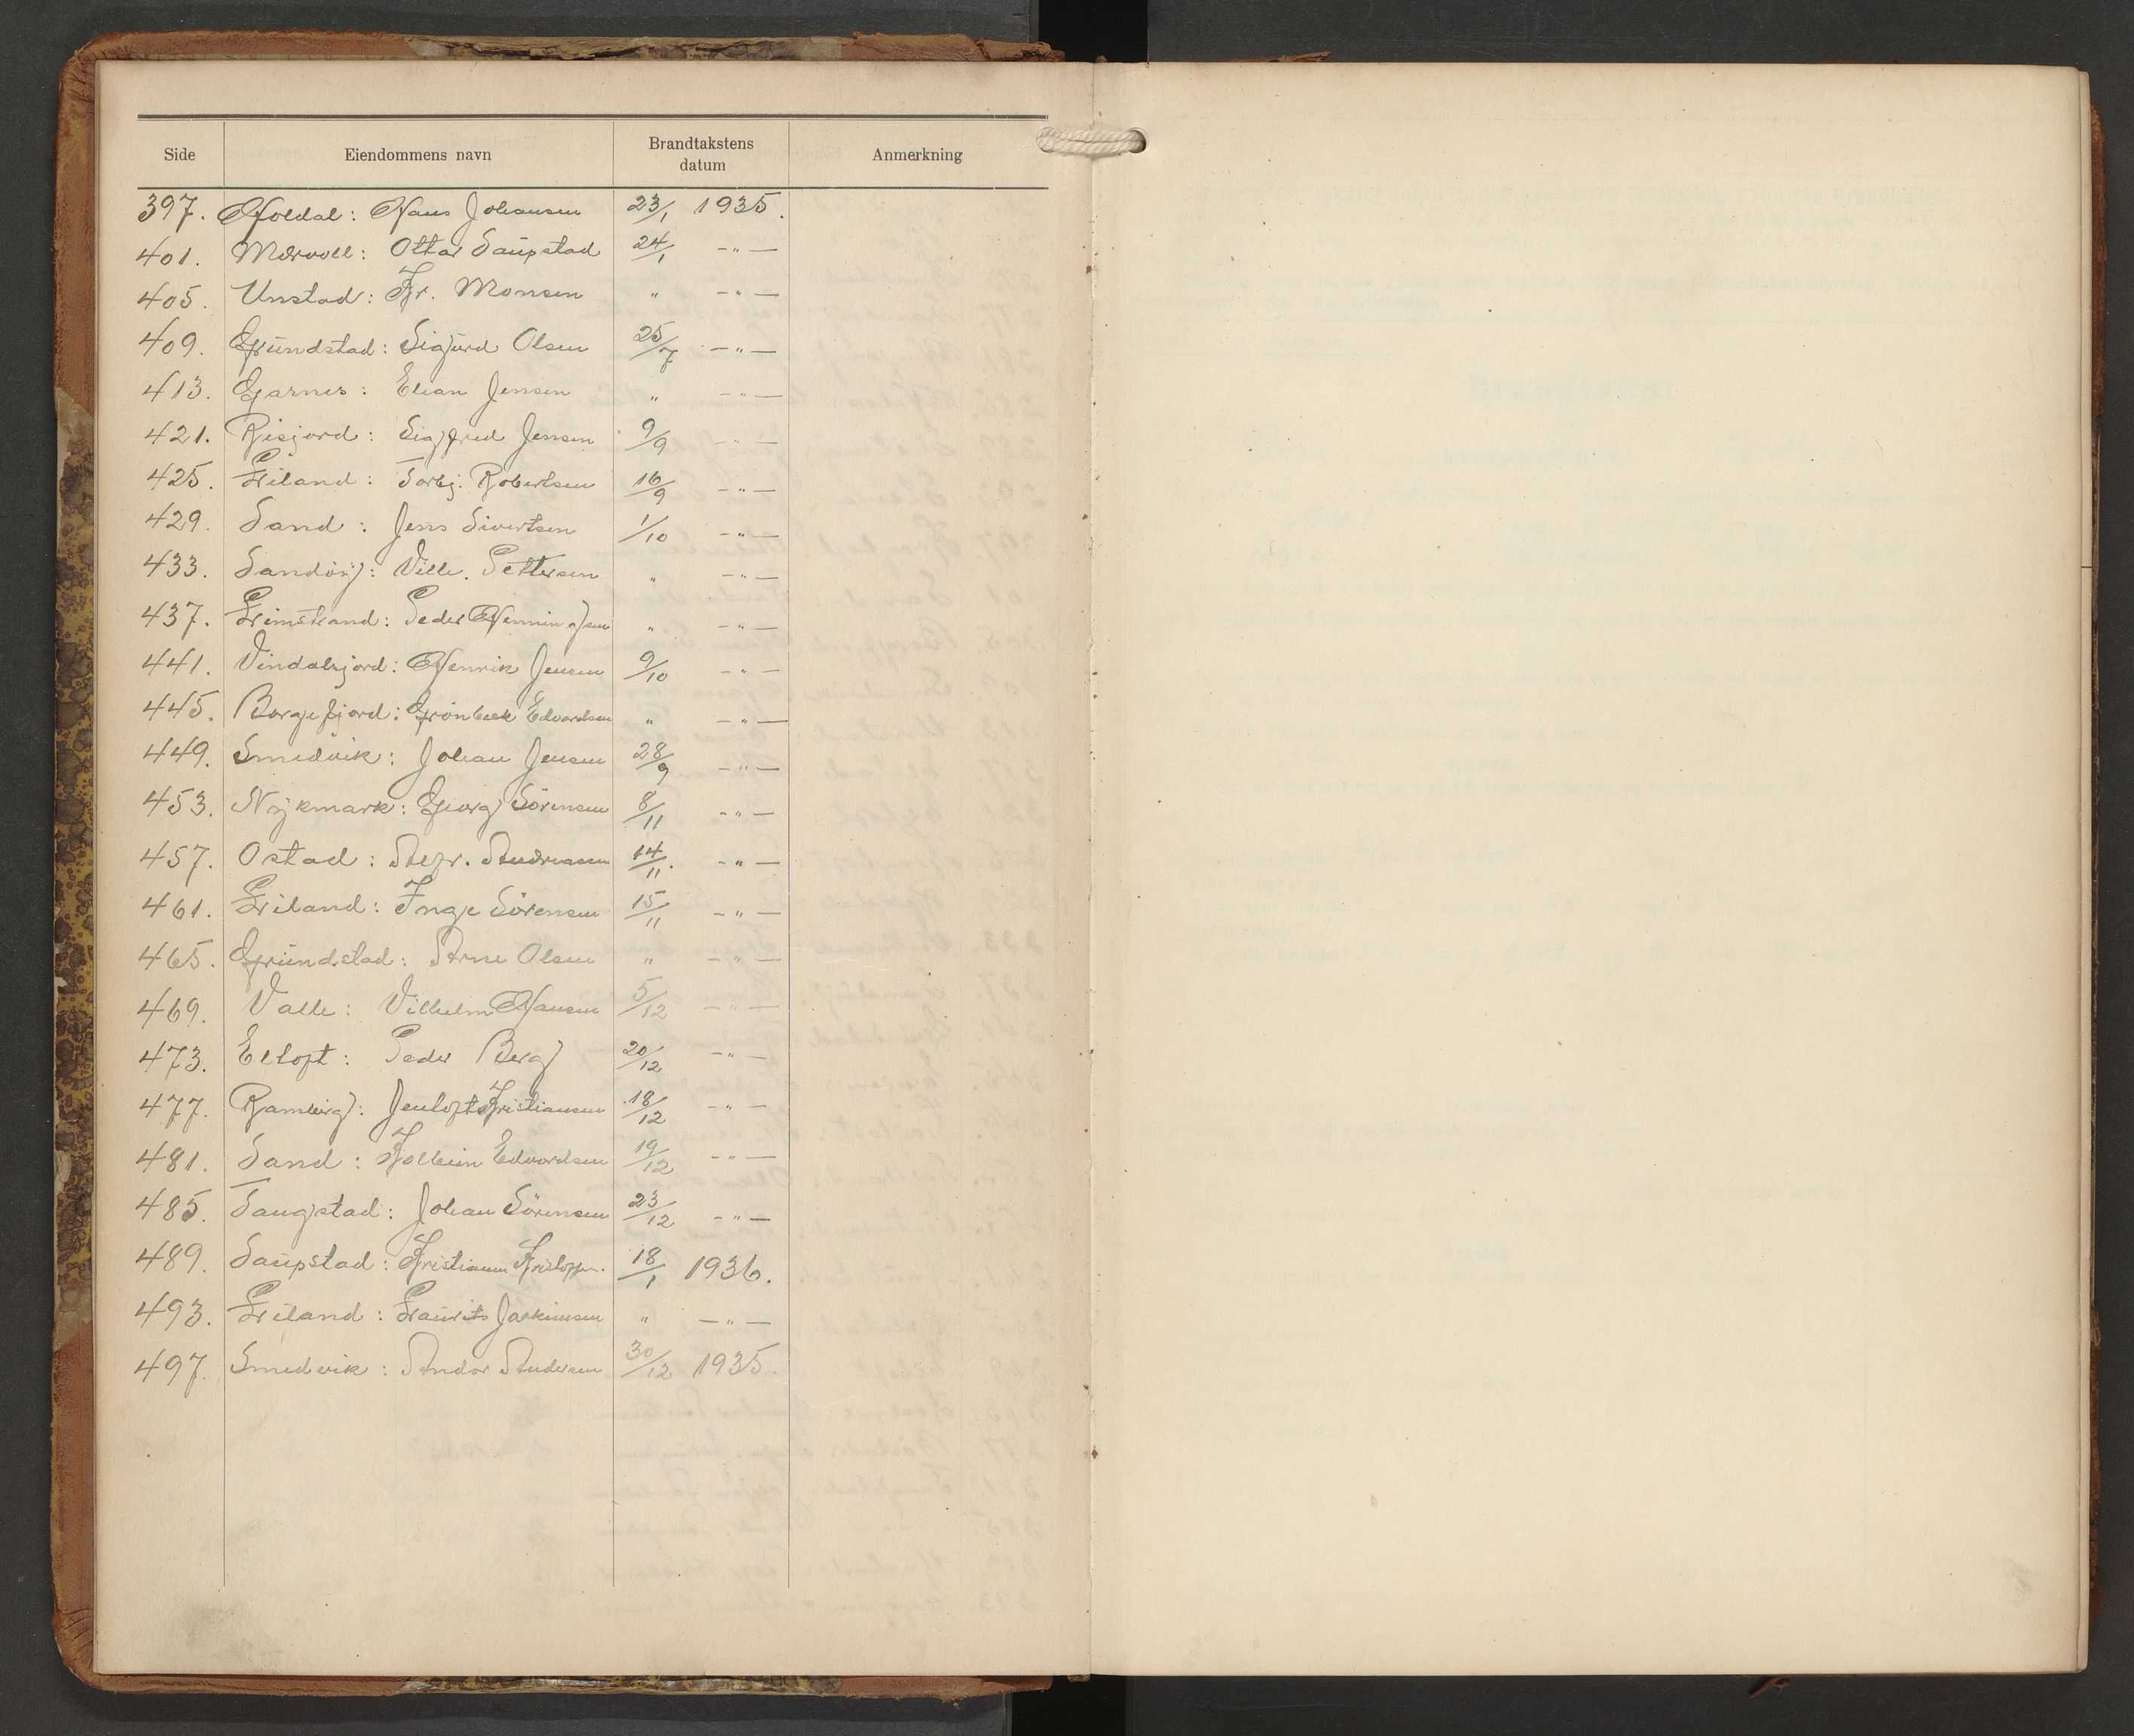 Side Eiendommens navn Brandtakstens datum Anmerkning
397. Holdal: Hans Johansen 23/1 1935.
401. Mærvoll: Ottar Saupstad 24/1 -"-
405. Unstad: Kr. Monsen " -"-
409. Grundstad: Sigurd Olsen 25/7 -"-
413. Garnes: Elian Jensen " -"-
421. Risjord: Sigfred Jensen 9/9 -"-
425. Liland: Torbj. Robertsen 16/9 -"-
429. Sand: Jens Sivertsen 1/10 -"-
433. Sandöy: Ville. Pettersen " -"-
437. Limstrand: Peder Henningsen " -"-
441. Vindalsjord: Henrik Jensen 9/10 -"-
445. Borgefjord: Grönbeck Edvardsen " -"-
449. Smedvik: Johan Jensen 28/9 -"-
453. Nykmark: Georg Sörensen 8/11 -"-
457. Ostad: Andreassen 14/11. -"-
461. Liland: Inge Sörensen 15/11 -"-
465. Grundstad: Arne Olsen " -"-
469. Valle: Vilhelm Hansen 5/12 -"-
473. Eltoft: Peder Berg 20/12 -"-
477. Ramberg: Jentoft Kristiansen 18/12 -"-
481. Sand: Kolbein Edvardsen 19/12 -"-
485. Tangstad: Johan Sörensen 23/12 -"-
489. Saupstad: Kristian Kristoffer. 18/1 1936.
493. Liland: Laurits Joakimsen " -"-
497. Smedvik: Andor Andersen 30/12 1935.